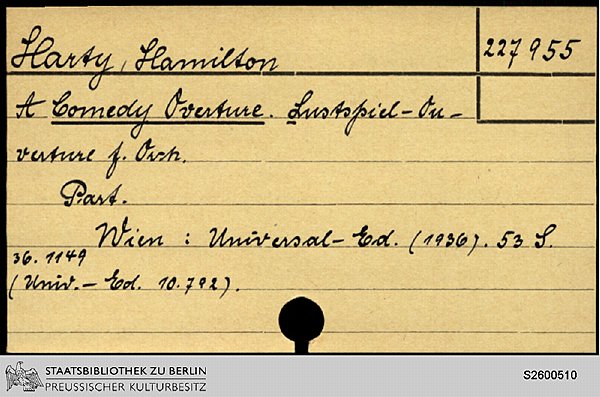 Harty, Hamilton
227955
A Comedy Overture. Lustspiel-Ou-
verture f. Orch.
Part.
Wien : Universal-Ed. (1936). 53 S.
36.1149
(Univ.-Ed. 10.792).
STAATSBIBLIOTHEK ZU BERLIN
PREUSSISCHER KULTURBESITZ
S2600510